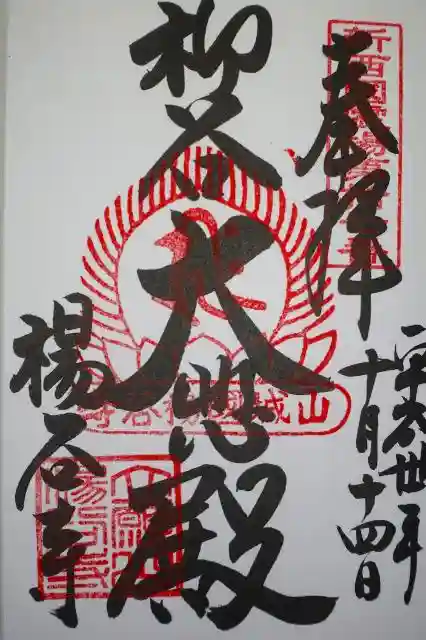 新西国霊場
奉拝
平成卅年
十月十四日
柳谷
大悲殿
山城国楊谷寺
楊谷寺